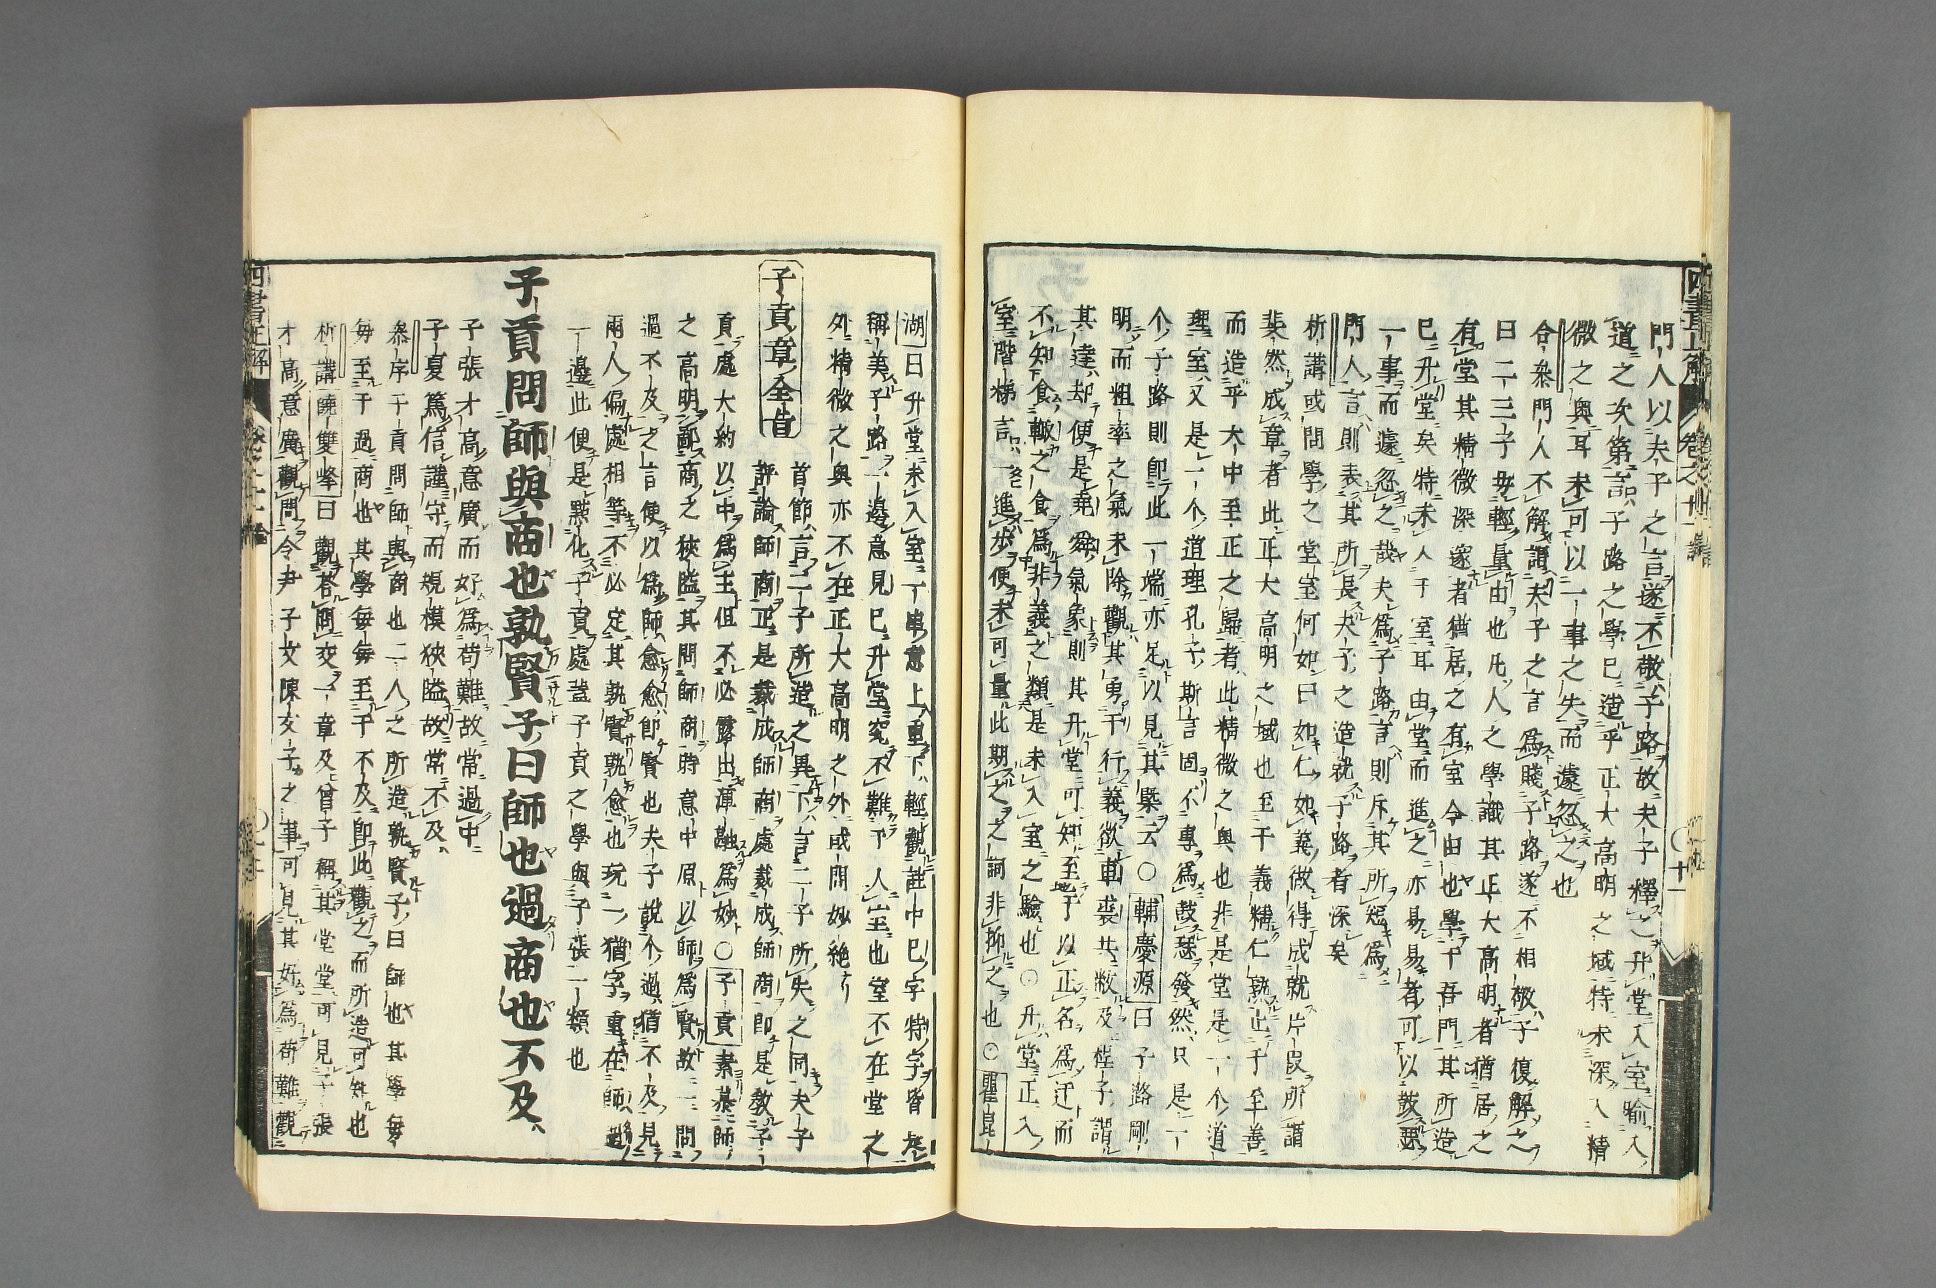 門人以夫子之言遂不敬子路故夫子釋之升堂入室喻入
道之次第言子路之學已造乎正大高明之域特未深入精
微之奧耳未可以一事之失而遽忽之也
合參門人不解謂夫子之言爲賤子路遂不相敬子復解之
曰二三子毋輕量由也凡人之學識其正大高明者猶居之
有堂其精微深邃者猶居之有室今由也學于吾門其所造
已升堂矣特未入于室耳由堂而進之亦易易者可以鼓瑟
一事而遽忽之哉夫爲子路言則斥其所短爲
門人言則表其所長夫子之造就子路者深矣
析講或問學之堂室何如曰如仁如義做得成就片段所謂
斐然成章者此正大高明之域也至于義精仁熟止于至善
而造乎大中至正之歸者此精微之奧也非是堂是一个道
理室又是一个道理孔子斯言固不專爲鼓瑟發然只是一
个子路則即此一端亦足以見其槩云○輔慶源曰子路剛
明而粗率之氣未除觀其勇于行義欲車裘共敝及
其達却便是堯舜氣象則其升堂可知至于以正名爲迂而
不知食輙之食爲非義之類是未入室之驗也○升堂正入
室階梯言一進步便未可量此期之之詞非抑之也○瞿昆
湖曰升堂未入室一串意上重下輕觀註中已字特字皆
稱美子路一邊意見已升堂究不難于入室也室不在堂之
外精微之奧亦不在正大高明之外成開妙絶
子貢章全旨
首節言二子所造之異下言二子所失之同夫子
評論師商正是裁成師商處裁成師商即是教子
貢處大約以中爲主但不必露出渾融爲妙○子貢素慕師
之高明鄙商之狹隘其問師商時意中原以師爲賢故一問
過不及之旨便以爲師愈愈即賢也夫子說个過猶不及見
兩人偏處相等不必定其孰賢孰愈也玩一猶字重在師過
一邊此便是點化子貢處蓋子貢之學與子張一類也
子貢問師與商也孰賢子曰師也過商也不及
子張才高意廣而好爲苟難故常過中
子夏篤信謹守而規模狹隘故常不及
參序子貢問師與商也二人之所造孰賢子曰師也其學每
每至于過商也其學每每至于不及即此觀之而所造可知也
析講饒雙峰曰觀答問交一章及曾子稱其堂堂可見子張
才高意廣觀問令尹子文陳文子之事可見其好爲苟難觀